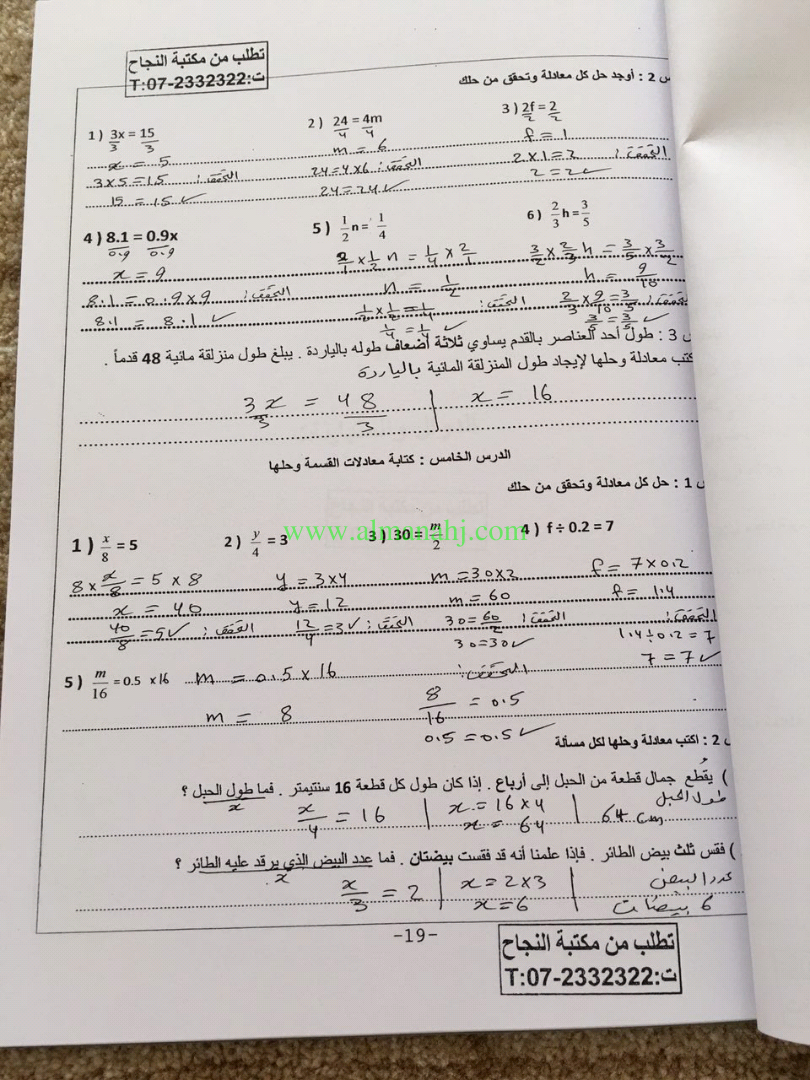 تطلب من مكتبة النجاح
ت:T:07-2332322
س 2 : أوجد حل كل معادلة وتحقق من حلك
1 ) 3x/3 = 15/3 2 ) 24/4 = 4m/4 3 ) 2f/2 = 2/2
x = 5 m = 6 f = 1
3×5=15 التحقق: 24=4×6 التحقق: 2×1=2 التحقق:
15 = 15 ✓ 24=24 ✓ 2=2 ✓
4 ) 8.1/0.9 = 0.9x/0.9 5 ) 1/2 n = 1/4 6 ) 2/3 h = 3/5
x = 9 2/1 × 1/2 n = 1/4 × 2/1 3/2 × 2/3 h = 3/5 × 3/2
8.1 = 0.9×9 التحقق: n = 1/2 h = 9/10
8.1 = 8.1 ✓ 1/2 × 1/2 = 1/4 التحقق: 2/3 × 9/10 = 3/5 التحقق:
1/4 = 1/4 ✓ 3/5 = 3/5 ✓
س 3 : طول أحد العناصر بالقدم يساوي ثلاثة أضعاف طوله بالياردة . يبلغ طول منزلقة مائية 48 قدماً .
كتب معادلة وحلها لإيجاد طول المنزلقة المائية بالياردة
3x/3 = 48/3 | x = 16
الدرس الخامس : كتابة معادلات القسمة وحلها
س 1 : حل كل معادلة وتحقق من حلك
www.almanahj.com
1 ) x/8 = 5 2 ) y/4 = 3 3 ) 30 = m/2 4 ) f ÷ 0.2 = 7
8 × x/8 = 5 × 8 y = 3×4 m = 30×2 f = 7×0.2
x = 40 y = 12 m = 60 f = 1.4
40/8 = 5 ✓ التحقق: 12/4 = 3 ✓ التحقق: 30 = 60/2 التحقق: التحقق:
30=30 ✓ 1.4÷0.2 = 7
7 = 7 ✓
5 ) m/16 = 0.5 ×16 m = 0.5 × 16 التحقق:
m = 8 8/16 = 0.5
0.5 = 0.5 ✓
س 2 : اكتب معادلة وحلها لكل مسألة
) يقُطع جمال قطعة من الحبل إلى أرباع . إذا كان طول كل قطعة 16 سنتيمتر . فما طول الحبل ؟
x
x/4 = 16 | x = 16×4 | طول الحبل
x = 64 | 64 cm
) فقس ثلث بيض الطائر . فإذا علمنا أنه قد فقست بيضتان . فما عدد البيض الذي يرقد عليه الطائر ؟
x
x/3 = 2 | x = 2×3 | عدد البيض
x = 6 | 6 بيضات
-19-
تطلب من مكتبة النجاح
ت:T:07-2332322